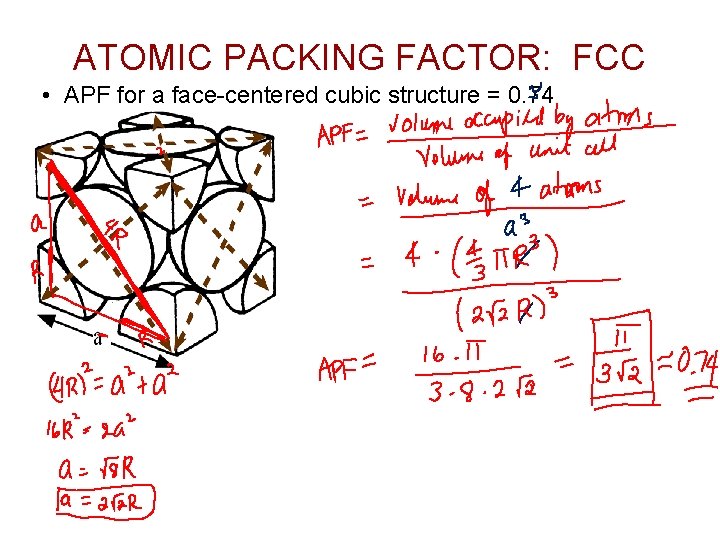 ATOMIC PACKING FACTOR: FCC
• APF for a face-centered cubic structure = 0.74
APF = Volume occupied by atoms / Volume of unit cell
= Volume of 4 atoms / a³
= 4 · (4/3 πR³) / (2√2 R)³
APF = 16·π / 3·8·2√2 = π / 3√2 ≈ 0.74
a
4R
R
R
a
(4R)² = a² + a²
16R² = 2a²
a = √8 R
a = 2√2R